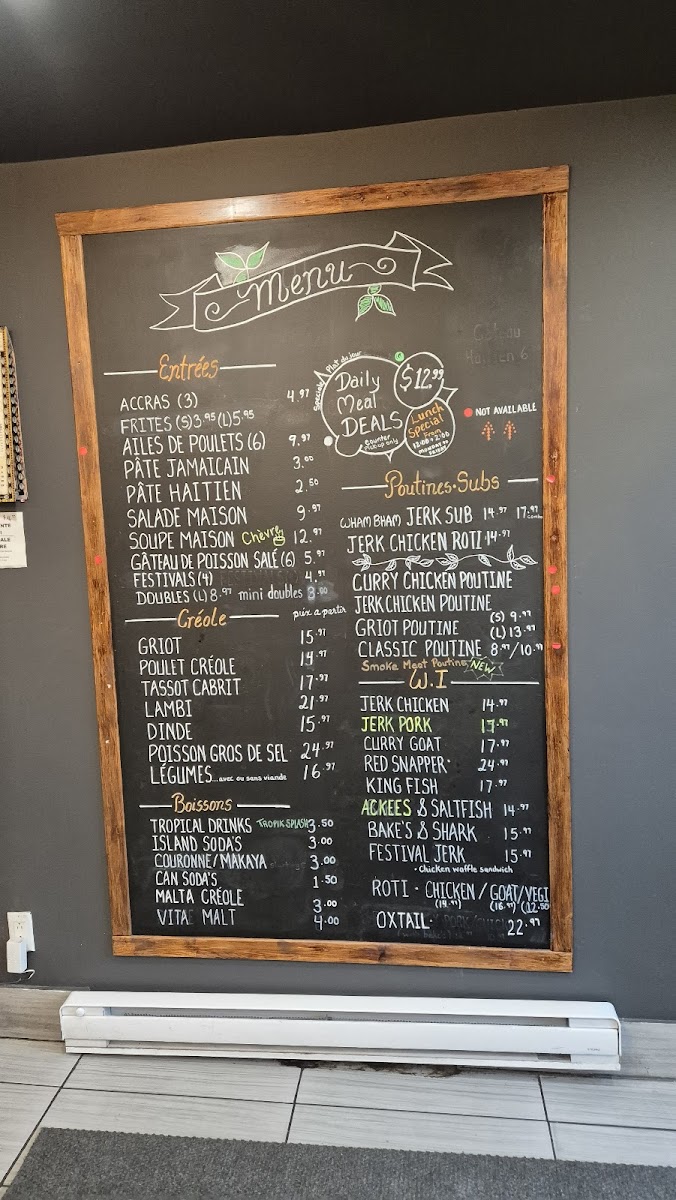 Menu
Entrées
ACCRAS (3) 4.97
FRITES (S) 3.95 (L) 5.95
AILES DE POULETS (6) 9.97
PÂTE JAMAICAIN 3.00
PÂTE HAITIEN 2.50
SALADE MAISON 9.97
SOUPE MAISON Chèvre 12.97
GÂTEAU DE POISSON SALÉ (6) 5.97
FESTIVALS (4) 4.97
DOUBLES (L) 8.97 mini doubles 3.00
Créole prix a partir
GRIOT 15.97
POULET CRÉOLE 14.97
TASSOT CABRIT 17.97
LAMBI 21.97
DINDE 15.97
POISSON GROS DE SEL 24.97
LÉGUMES...avec ou sans viande 16.97
Boissons
TROPICAL DRINKS TROPIK SPLASH 3.50
ISLAND SODA'S 3.00
COURONNE/MAKAYA 3.00
CAN SODA'S 1.50
MALTA CRÉOLE 3.00
VITA MALT 4.00
Gâteau
Haitien 6
Speciale Plat du jour
Daily
Meal
DEALS
Counter
Pick-up only
$12.99
Lunch
Special
From
12:00 - 2:00
MONDAY
NOT AVAILABLE
Poutines·Subs
WHAM BHAM JERK SUB 14.97 17.97
JERK CHICKEN ROTI 14.97
CURRY CHICKEN POUTINE
JERK CHICKEN POUTINE
GRIOT POUTINE (S) 9.97
(L) 13.97
CLASSIC POUTINE 8.97/10.97
Smoke Meat Poutine NEW
W.I
JERK CHICKEN 14.97
JERK PORK 17.97
CURRY GOAT 17.97
RED SNAPPER 24.97
KING FISH 17.97
ACKEES & SALTFISH 14.97
BAKE'S & SHARK 15.97
FESTIVAL JERK 15.97
· Chicken waffle sandwich
ROTI · CHICKEN / GOAT/VEGI
(14.97) (16.97) (12.50
OXTAIL· 22.97